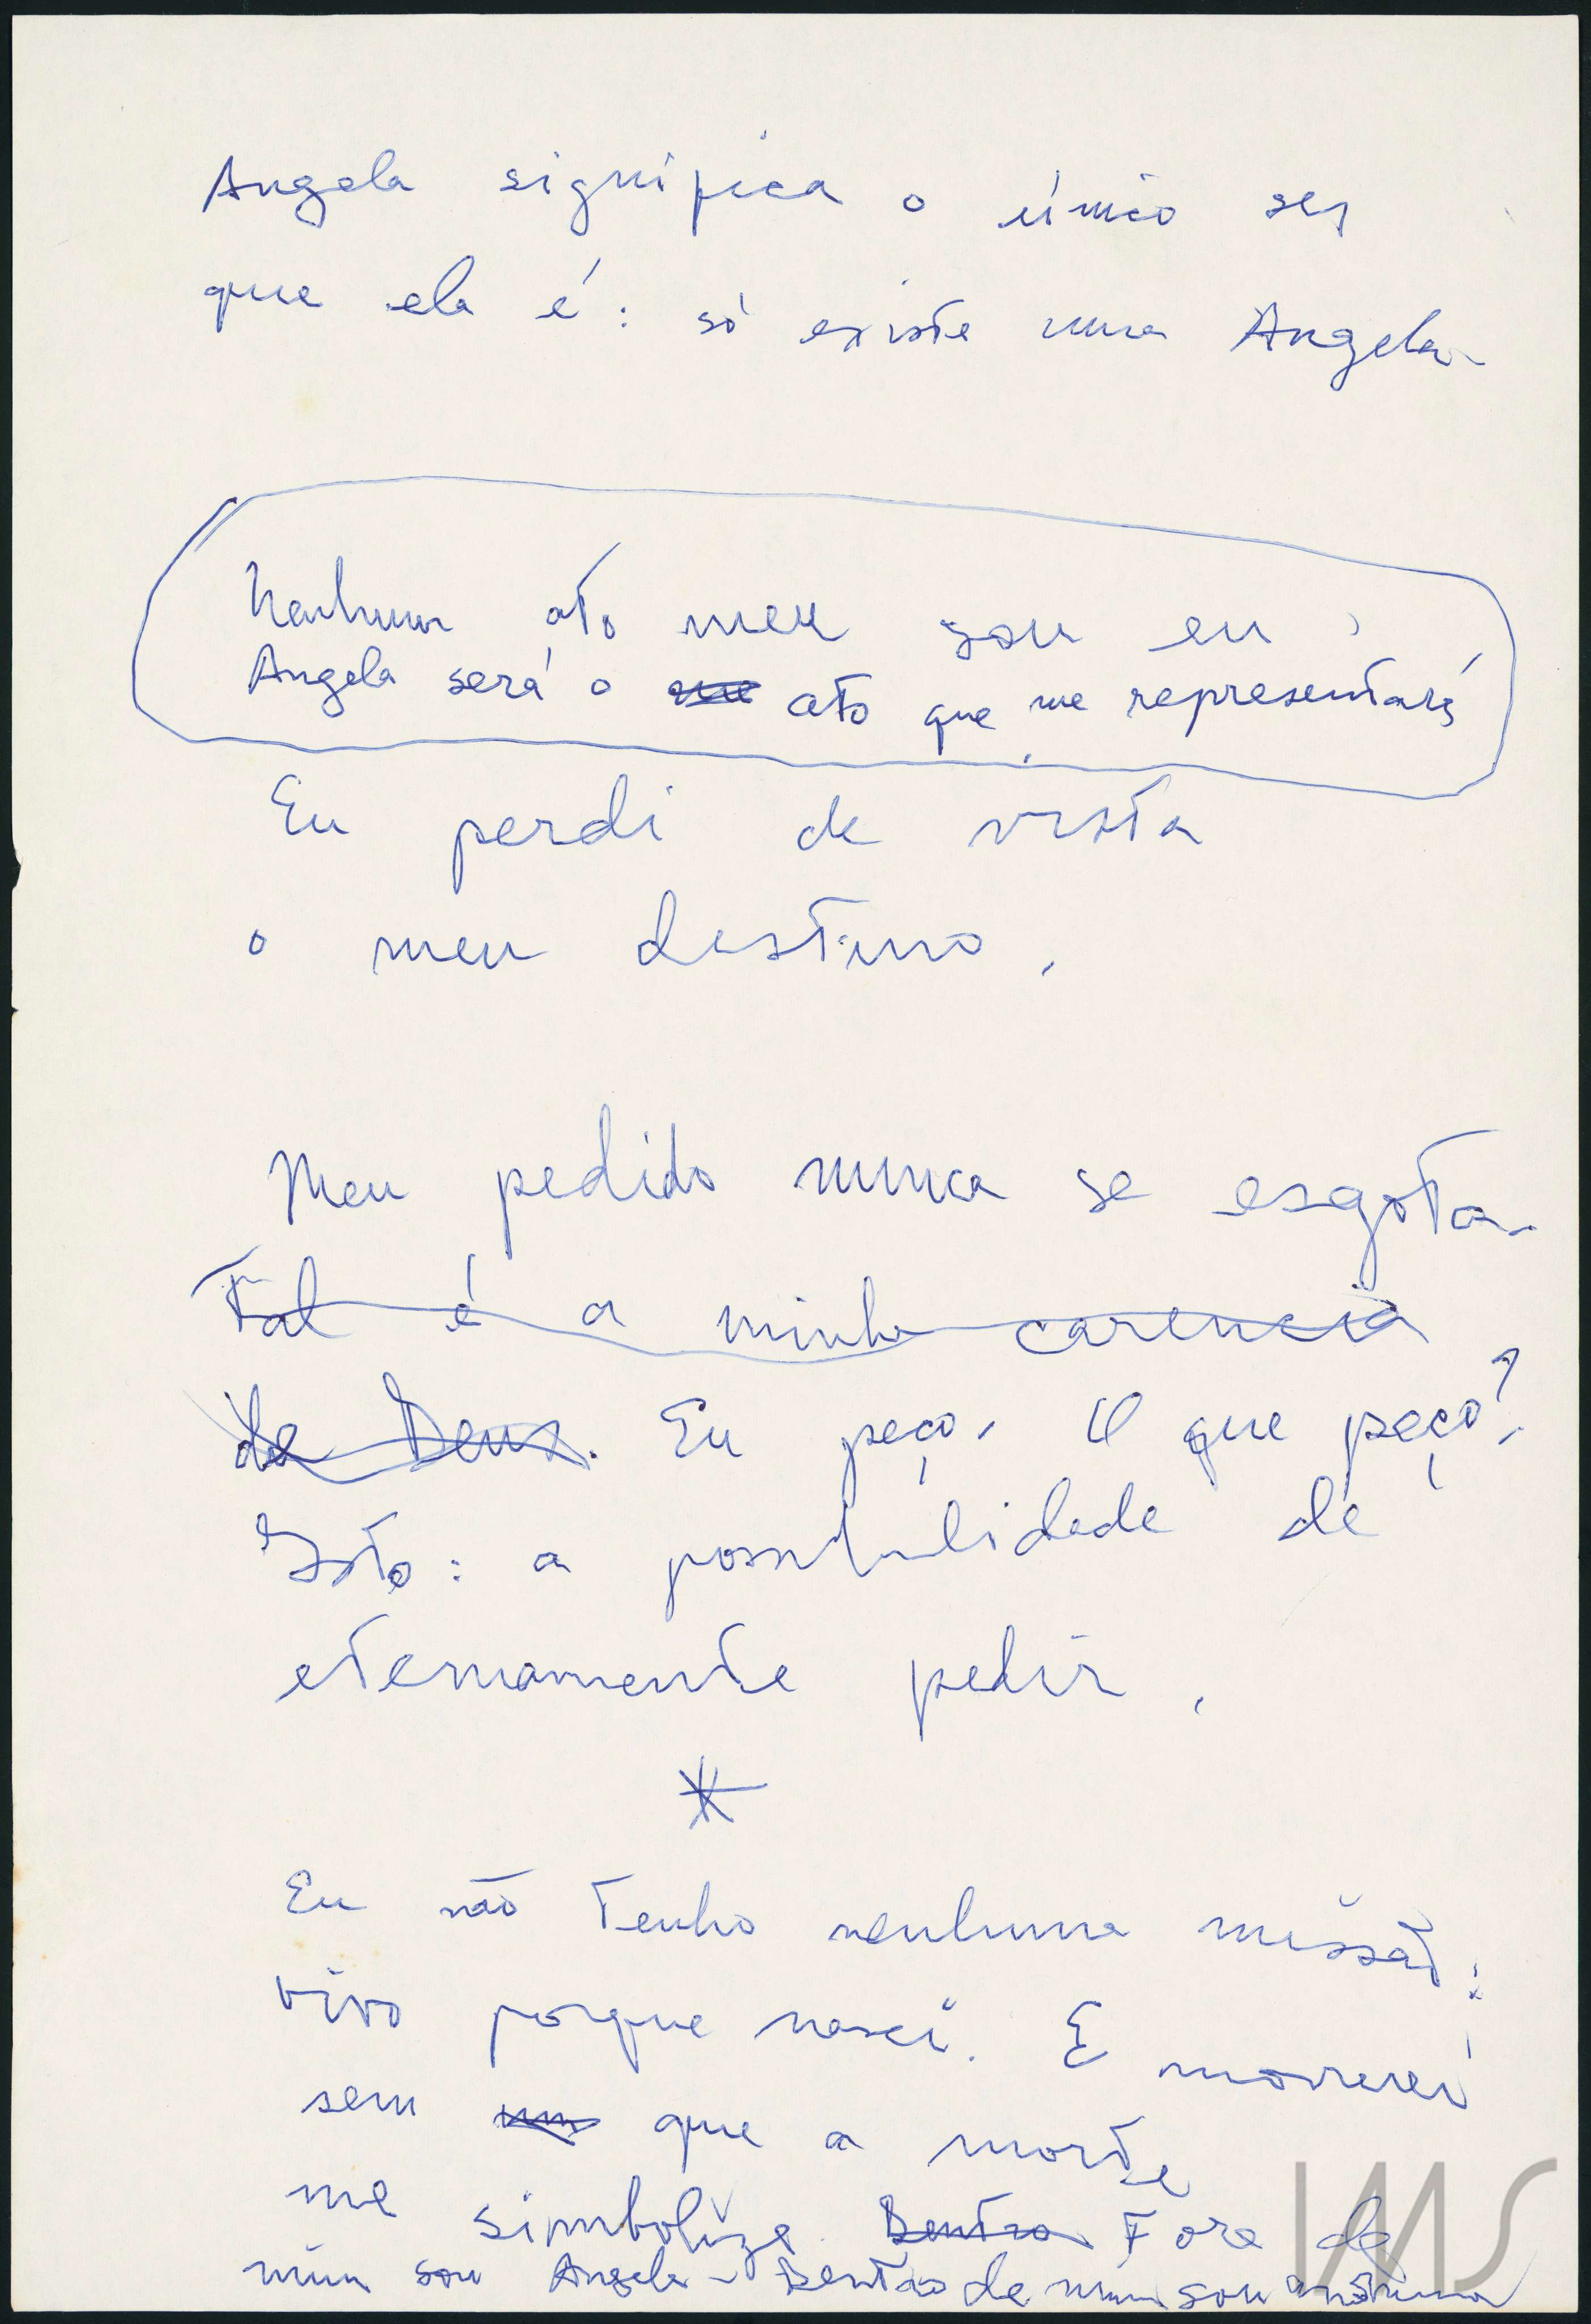 Angela significa o único ser
que ela é: só existe uma Angela.
Nenhum ato meu sou eu.
Angela será o ato que me representará
Eu perdi de vista
o meu destino.
Meu pedido nunca se esgota.
Tal é a minha carencia
de Deus. Eu peço. O que peço?
Isto: a possibilidade de
eternamente pedir.
*
Eu não tenho nenhuma missão:
vivo porque nasci. E morrerei
sem que a morte
me simbolize. Dentro Fora de
mim sou Angela. Dentro de mim sou anônima
IMS